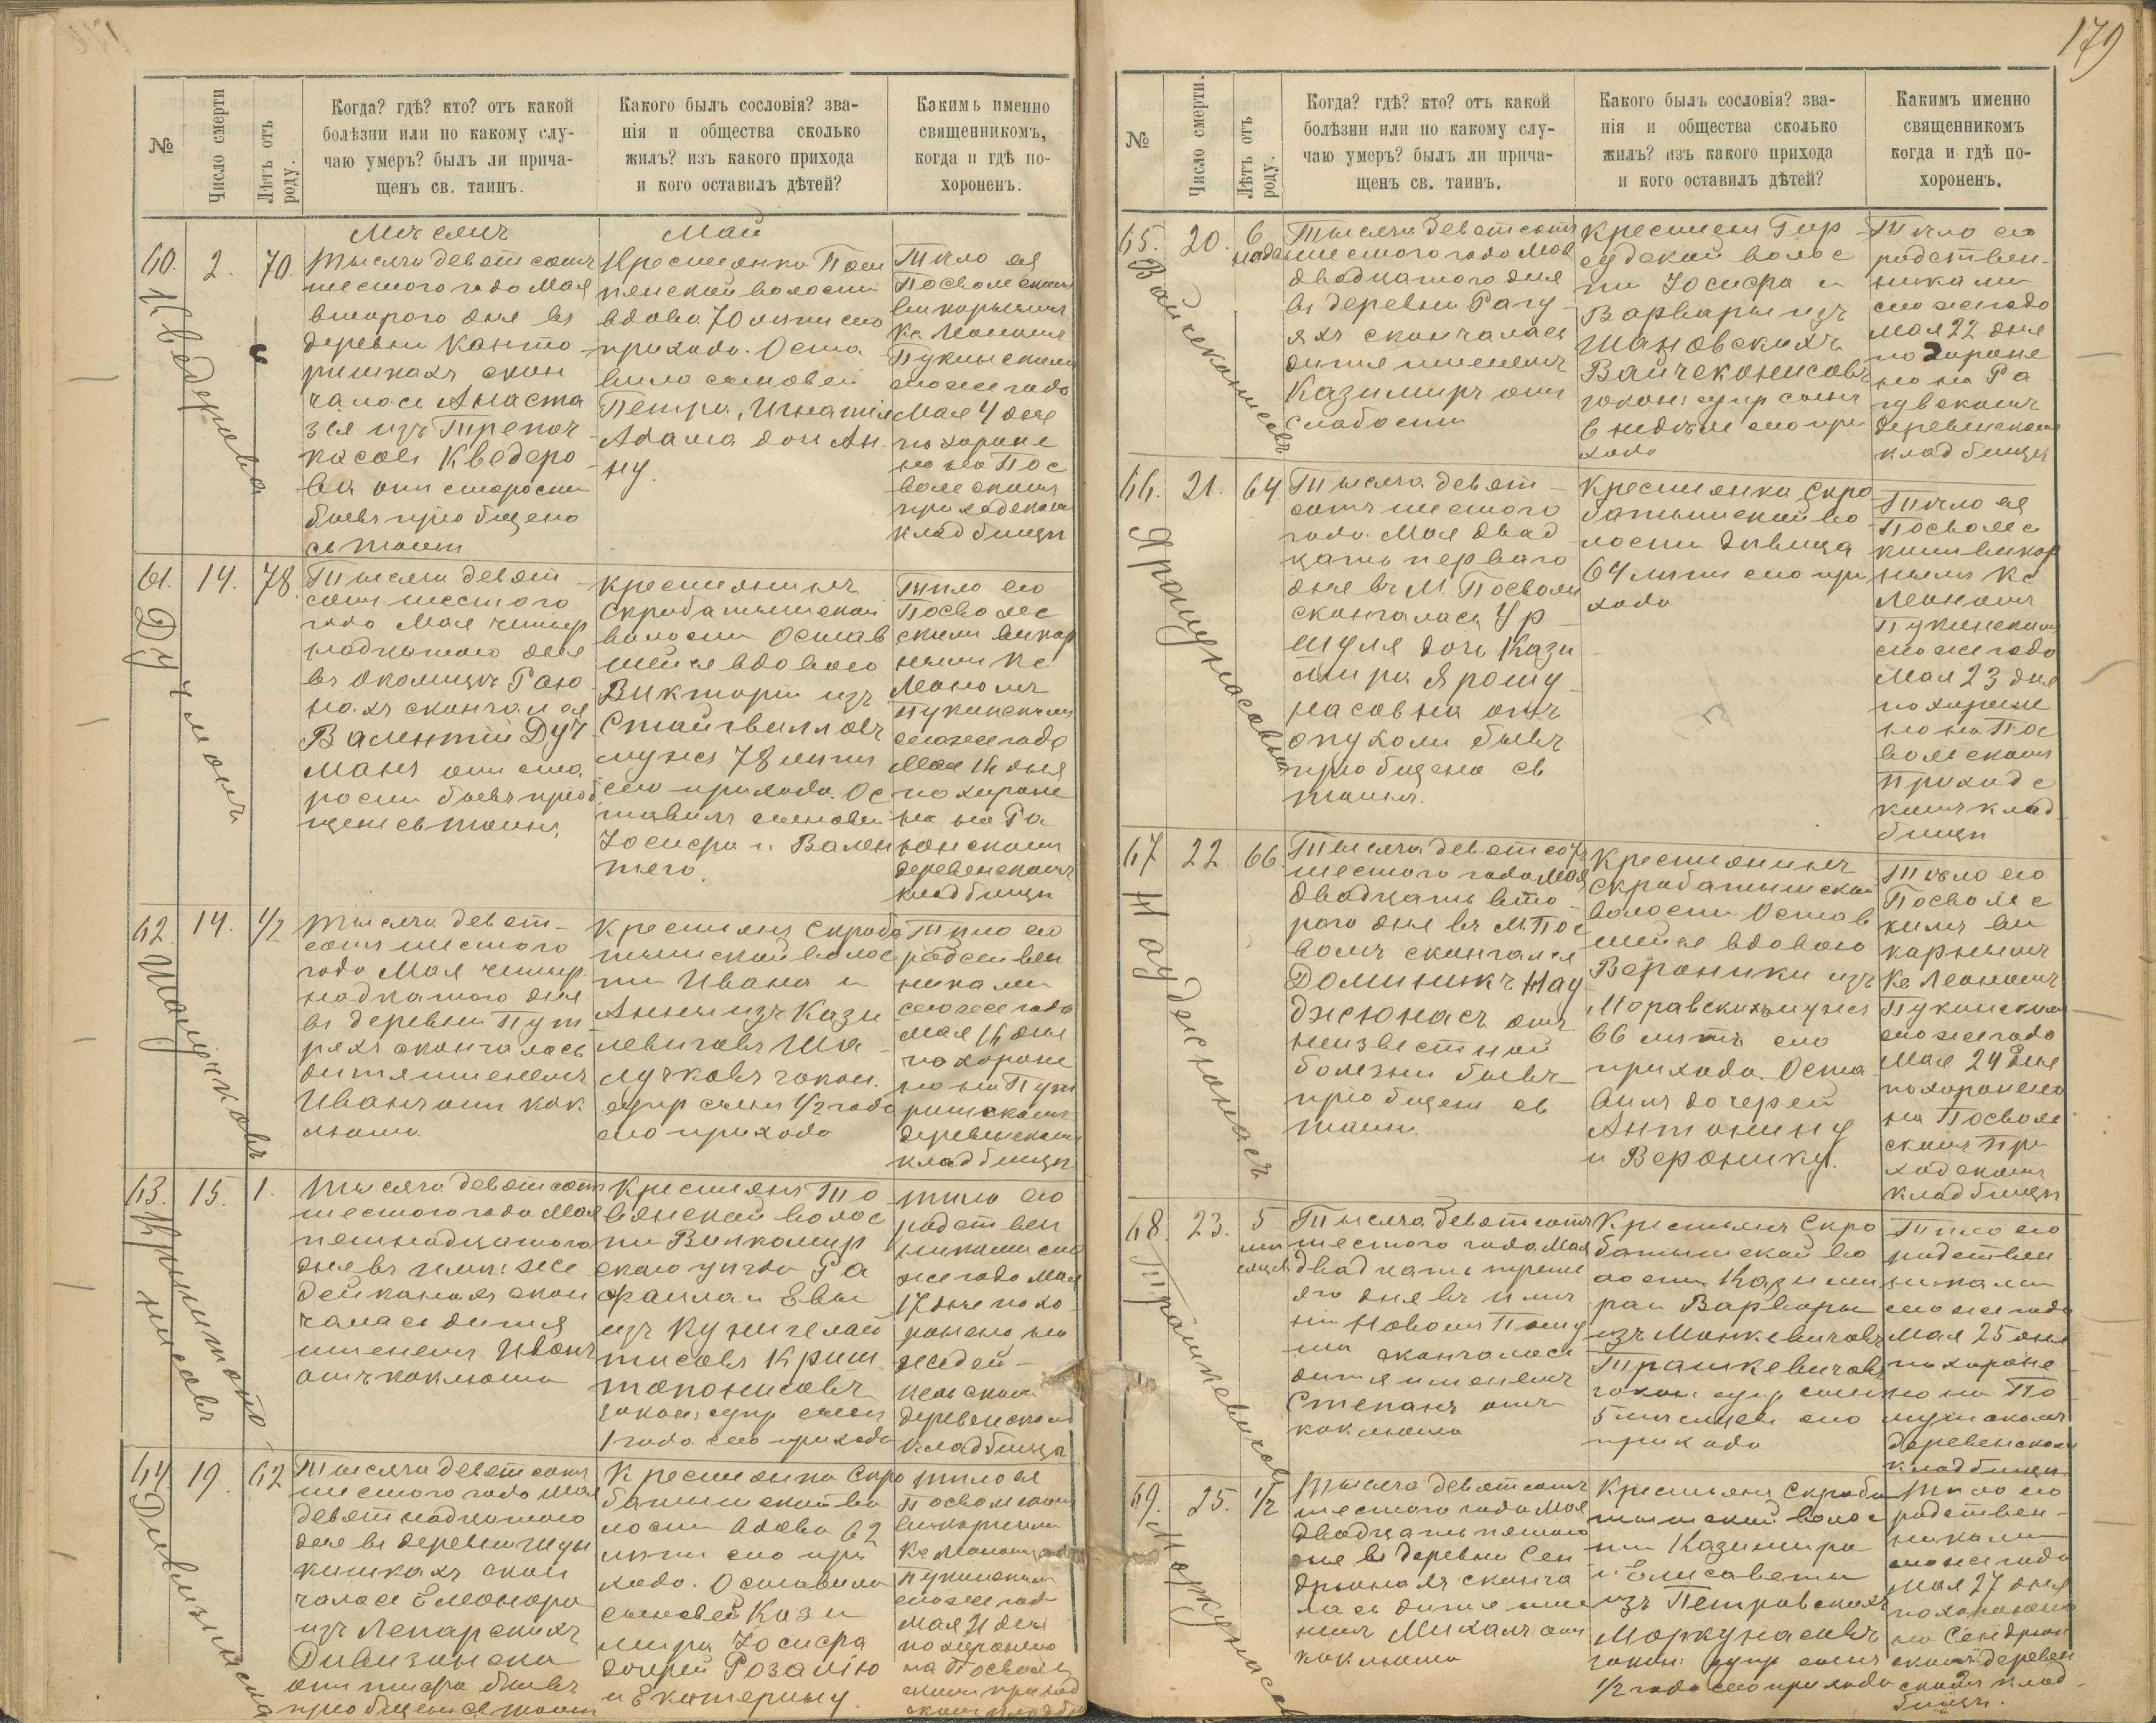 179
№
Число смерти
Лѣтъ отъ роду.
Когда? гдѣ? кто? отъ какой
болѣзни или по какому слу-
чаю умеръ? былъ ли прича-
щенъ св. таинъ.
Какого былъ сословія? зва-
нія и общества сколько
жилъ? изъ какого прихода
и кого оставилъ дѣтей?
Какимъ именно
священникомъ,
когда и гдѣ по-
хороненъ.
Май
60.
2.
70.
Тысяча девятсотъ
шестого года Мая
второго дня въ
деревни Канто
ришкахъ скон
чалась Анаста
зея изъ Трепоч
касовъ Кведеро
ва отъ старости
бывъ приобщена
св таинъ
вдова 70 лѣтъ сего
прихода. Оста
вила сыновей
Петра, Игнатія
Адама дочь Ан
ну.
Тѣло ея
Посвольскимъ
викарнымъ
Кс Леономъ
Пукинскимъ
сего же года
Мая 4 дня
похороне
но на Пос
вольскомъ
приходскомъ
кладбищи
61.
14.
78.
Дучманъ
Тысяча девят
сотъ шестого
года Мая четыр
надцатого дня
въ околицѣ Раю
нахъ скончался
Валентій Дуч
манъ отъ ста
рости бывъ приоб
щенъ св таинъ
Крестьянинъ
Скробатышской
волости Остав
шейся вдовою
Викторіи изъ
мужъ 78 лѣтъ
сего прихода. Ос
тавилъ сыновей
Іосифа и Вален
тего.
Тѣло его
Посволь
скимъ викар
нымъ Кс
Леономъ
Пукинскимъ
сего же года
Мая 16 дня
похороне
но на Ра
юнскомъ
деревенскомъ
кладбищи
62
14.
1/2
Тысяча девят-
сотъ шестого
года Мая четыр
надцатого дня
въ деревни Пут
ряхъ скончалось
дитя именемъ
Иванъ отъ кок
люша
Крестьянъ Скроба
тышской волос
ти Ивана и
Анны изъ Кази
левичовъ Ша
мучковъ закон.
супр сынъ 1/2 года
сего прихода
Тѣло его
родствен
никами
сего же года
Мая 16 дня
похороне
но на Пут
ришскомъ
деревенскомъ
кладбищи
63.
15.
1.
Тысяча девятсотъ
шестого года Мая
пятнадцатого
дня въ имѣ: Же
дейканахъ скон
чалась дитя
именемъ Иванъ
отъ коклюша
Крестьянъ То
вянской волос
ти Вилкомир
скаго уѣзда Ра
фаила и Евы
тисовъ Криш
топонисовъ
закон. супр сынъ
1 года сего прихода
Тѣло его
родствен
никами сего
же года Мая
17 дня похо
ронено на
Жедей-
канскомъ
деревенскомъ
кладбища
64.
19.
62
Тысяча девятсотъ
шестого года Мая
девятнадцатого
кишкахъ скон
чалась Елеонора
изъ Лепарскихъ
отъ тифа бывъ
приобщена св таинъ
Крестьянка Скро
батышской во
лости вдова 62
лѣтъ сего при
хода. Оставила
сыновей Кази
мира Іосифа
дочерей Розалію
и Екатерину.
Тѣло ея
Посвольскимъ
викарнымъ
Пукинскимъ
сего же года
Мая 21 дня
похоронено
№
Число смерти.
Лѣтъ отъ роду.
Когда? гдѣ? кто? отъ какой
болѣзни или по какому слу-
чаю умеръ? былъ ли прича-
щенъ св. таинъ.
Какого былъ сословія? зва-
нія и общества сколько
жилъ? изъ какого прихода
и кого оставилъ дѣтей?
Какимъ именно
священникомъ
когда и гдѣ по-
хороненъ.
65.
20.
6
Тысяча девятсотъ
шестого года Мая
двадцатого дня
въ деревни Рагу
яхъ скончалась
дитя именемъ
Казимиръ отъ
слабости
Крестьянъ Гир
судской волос
ти Іосифа и
Варвары изъ
Шановскихъ
Вайчеконисовъ
закон: супр сынъ
6 недѣль сего при
хода
Тѣло его
родствен-
никами
сего же года
Мая 22 дня
похороне
но на Ра
деревенскомъ
кладбищи
66.
21.
64
Тысяча девят-
сотъ шестого
года Мая двад
цать первого
дня въ М. Посволи
скончалась Ур
шуля дочь Кази
мира Ярошу
насовна отъ
опухоли бывъ
приобщена св
таинъ.
Крестьянка Скро
батышской во
лости дѣвица
64 лѣтъ сего при
хода
Тѣло ея
Посволь
скимъ викар
нымъ Кс
Леономъ
Пукинскимъ
сего же года
Мая 23 дня
похороне
но на Пос
вольскомъ
приходс
комъ клад
бищи
67
22
66
Тысяча девятсотъ
шестого года Мая
двадцать вто
рого дня въ М. Пос
волѣ скончался
Доминикъ Нау
джюнасъ отъ
неизвестной
болезни бывъ
приобщенъ св
таинъ.
Крестьянинъ
Скробатышской
волости Остав
шейся вдовою
Вероники изъ
Моравскихъ мужъ
66 лѣтъ сего
прихода. Оста
вилъ дочерей
Антонину
и Веронику.
Тѣло его
Посволь
кимъ ви
карнымъ
Кс Леономъ
Пукинскимъ
сего же года
Мая 24 дня
похоронено
на Посволь
скомъ при
ходскомъ
кладбищи
68.
23.
5
мѣ
сяцев
Тысяча девятсотъ
шестого года Мая
двадцать треть
яго дня въ имѣ
скончалось
дитя именемъ
Степанъ отъ
коклюша
Крестьянъ Скро
батышской во
лости Казими
ра и Варвары
изъ Монкевичовъ
Трашкевичовъ
закон супр сынъ
5 мѣсяцевъ сего
прихода
Тѣло его
родствен
никами
сего же года
Мая 25 дня
похороне
но на По
деревенскомъ
кладбищи
69.
25.
1/2
Тысяча девятсотъ
шестого года Мая
двадцать пятого
дня въ деревни Сен
дрюнахъ сконча
лась дитя име
немъ Михалъ отъ
коклюша
Крестьянъ Скроба
тышской волос
ти Казимира
и Елисаветы
изъ Петровскихъ
Моркунасовъ
закон: супр сынъ
1/2 года сего прихода
Тѣло его
родствен-
никами
сего же года
Мая 27 дня
похоронено
на Сендрюн
скомъ деревен
скомъ клад-
бищи.